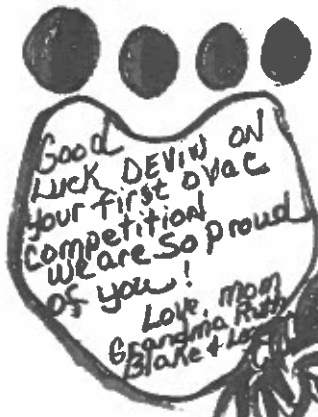 Good
LUCK DEVIN ON
your first ovac
competition
we are so proud
of you!
Love, mom
Grandma Ruth
Blake &